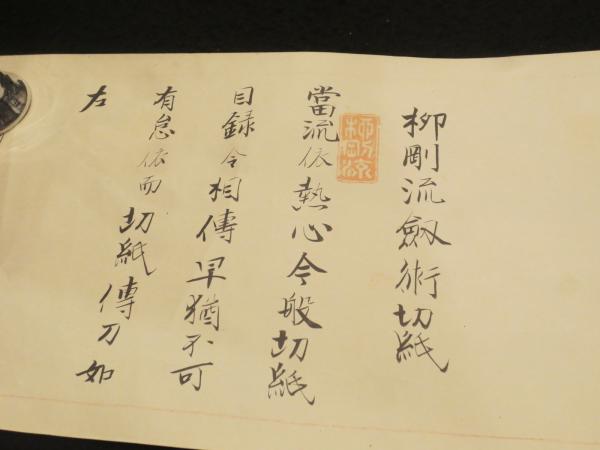 柳剛流劔術切紙
柳剛流
當流依熱心今般切紙
目録令相傳早猶不可
有怠依而切紙傳刀如
左